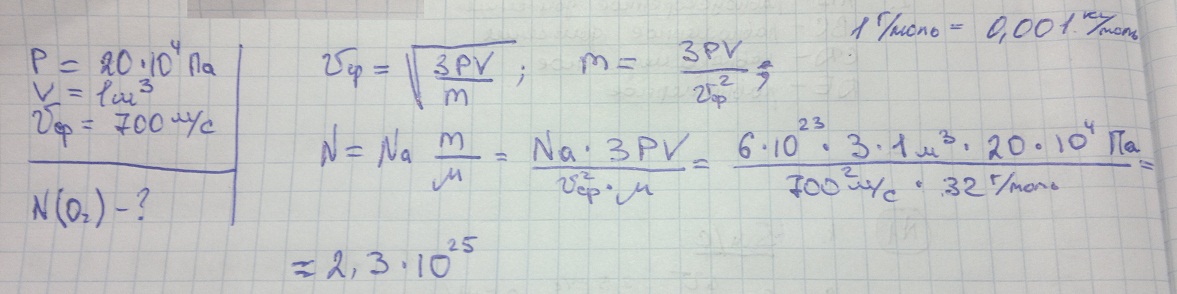 1 г/моль = 0,001 кг/моль
P = 20·10⁴ Па
V = 1м³
υср = 700 м/с
N(O₂) - ?
υср = √(3PV/m) ; m = 3PV/υср² ;
N = Na m/μ = Na·3PV/υср²·μ = 6·10²³·3·1м³·20·10⁴ Па/700² м/с · 32 г/моль =
≈ 2,3·10²⁵